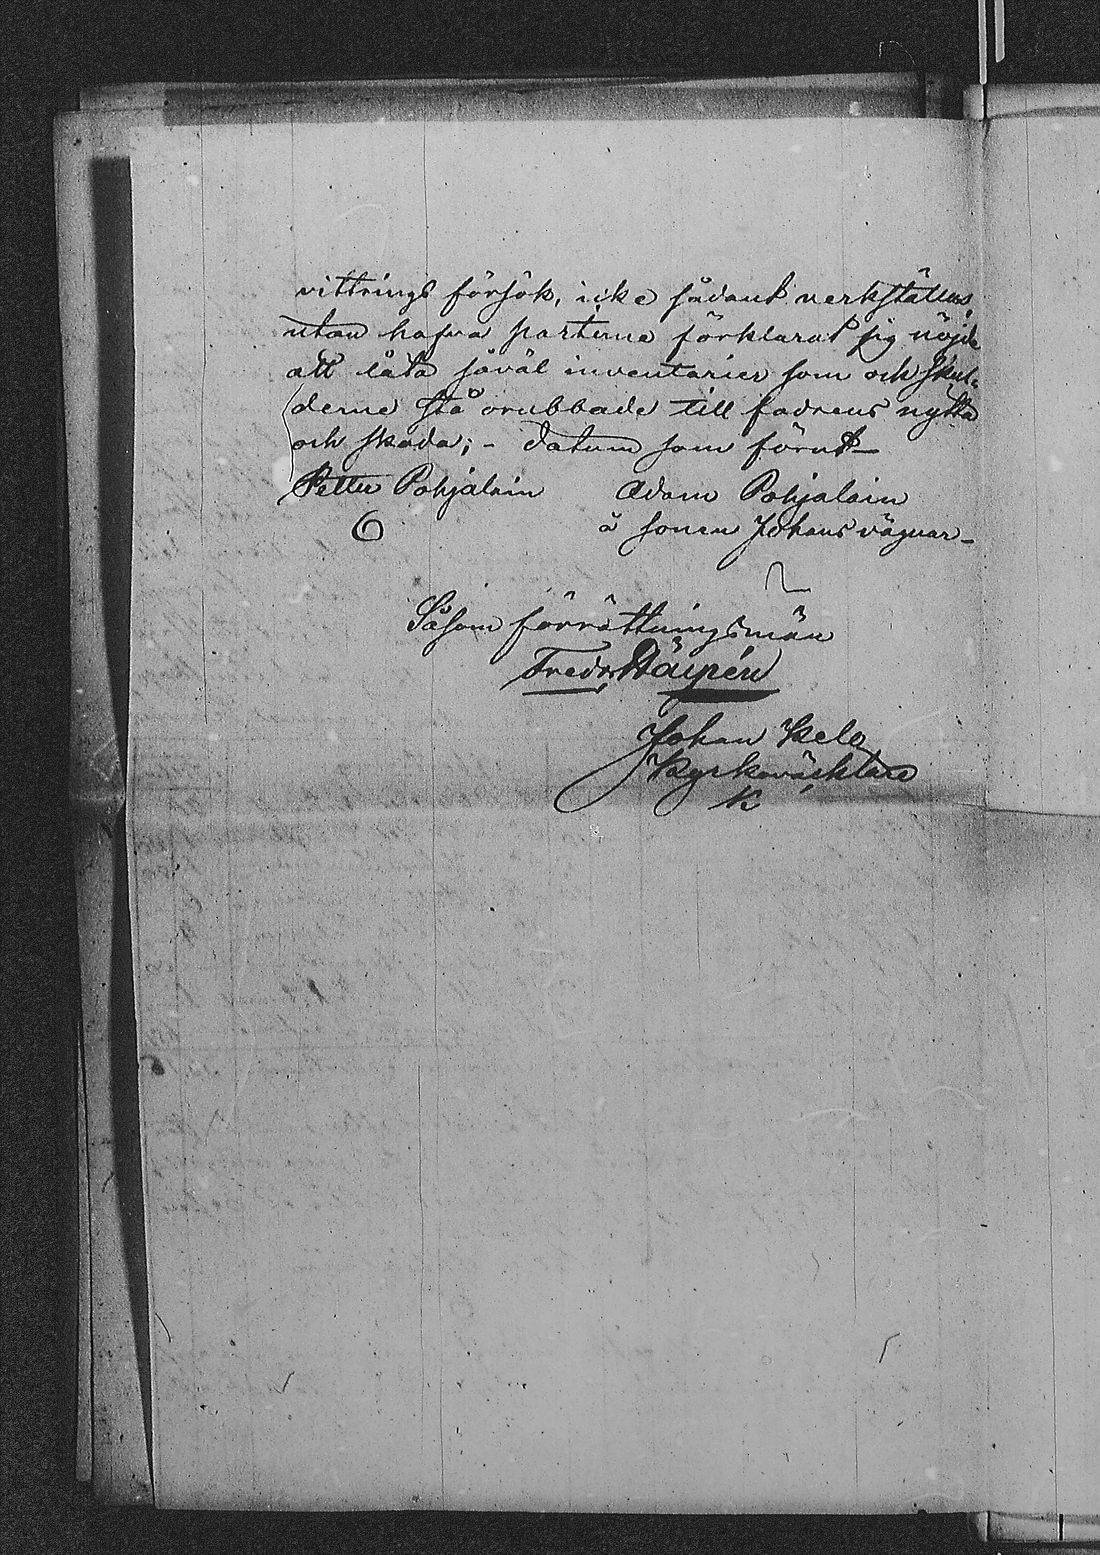 vittrings försök, icke sådant verkställas,
utan hafva parterne förklarat sig nöjde
att låta såväl inventarier som och skul-
derne stå orubbade till fadrens nytta
och skada; - datum som förut -
Petter Pohjalain Adam Pohjalain
å sonen Johans vägnar -
Såsom förrättningsmän
Fredr
Johan Kelo
Kyrkoväcktare
K